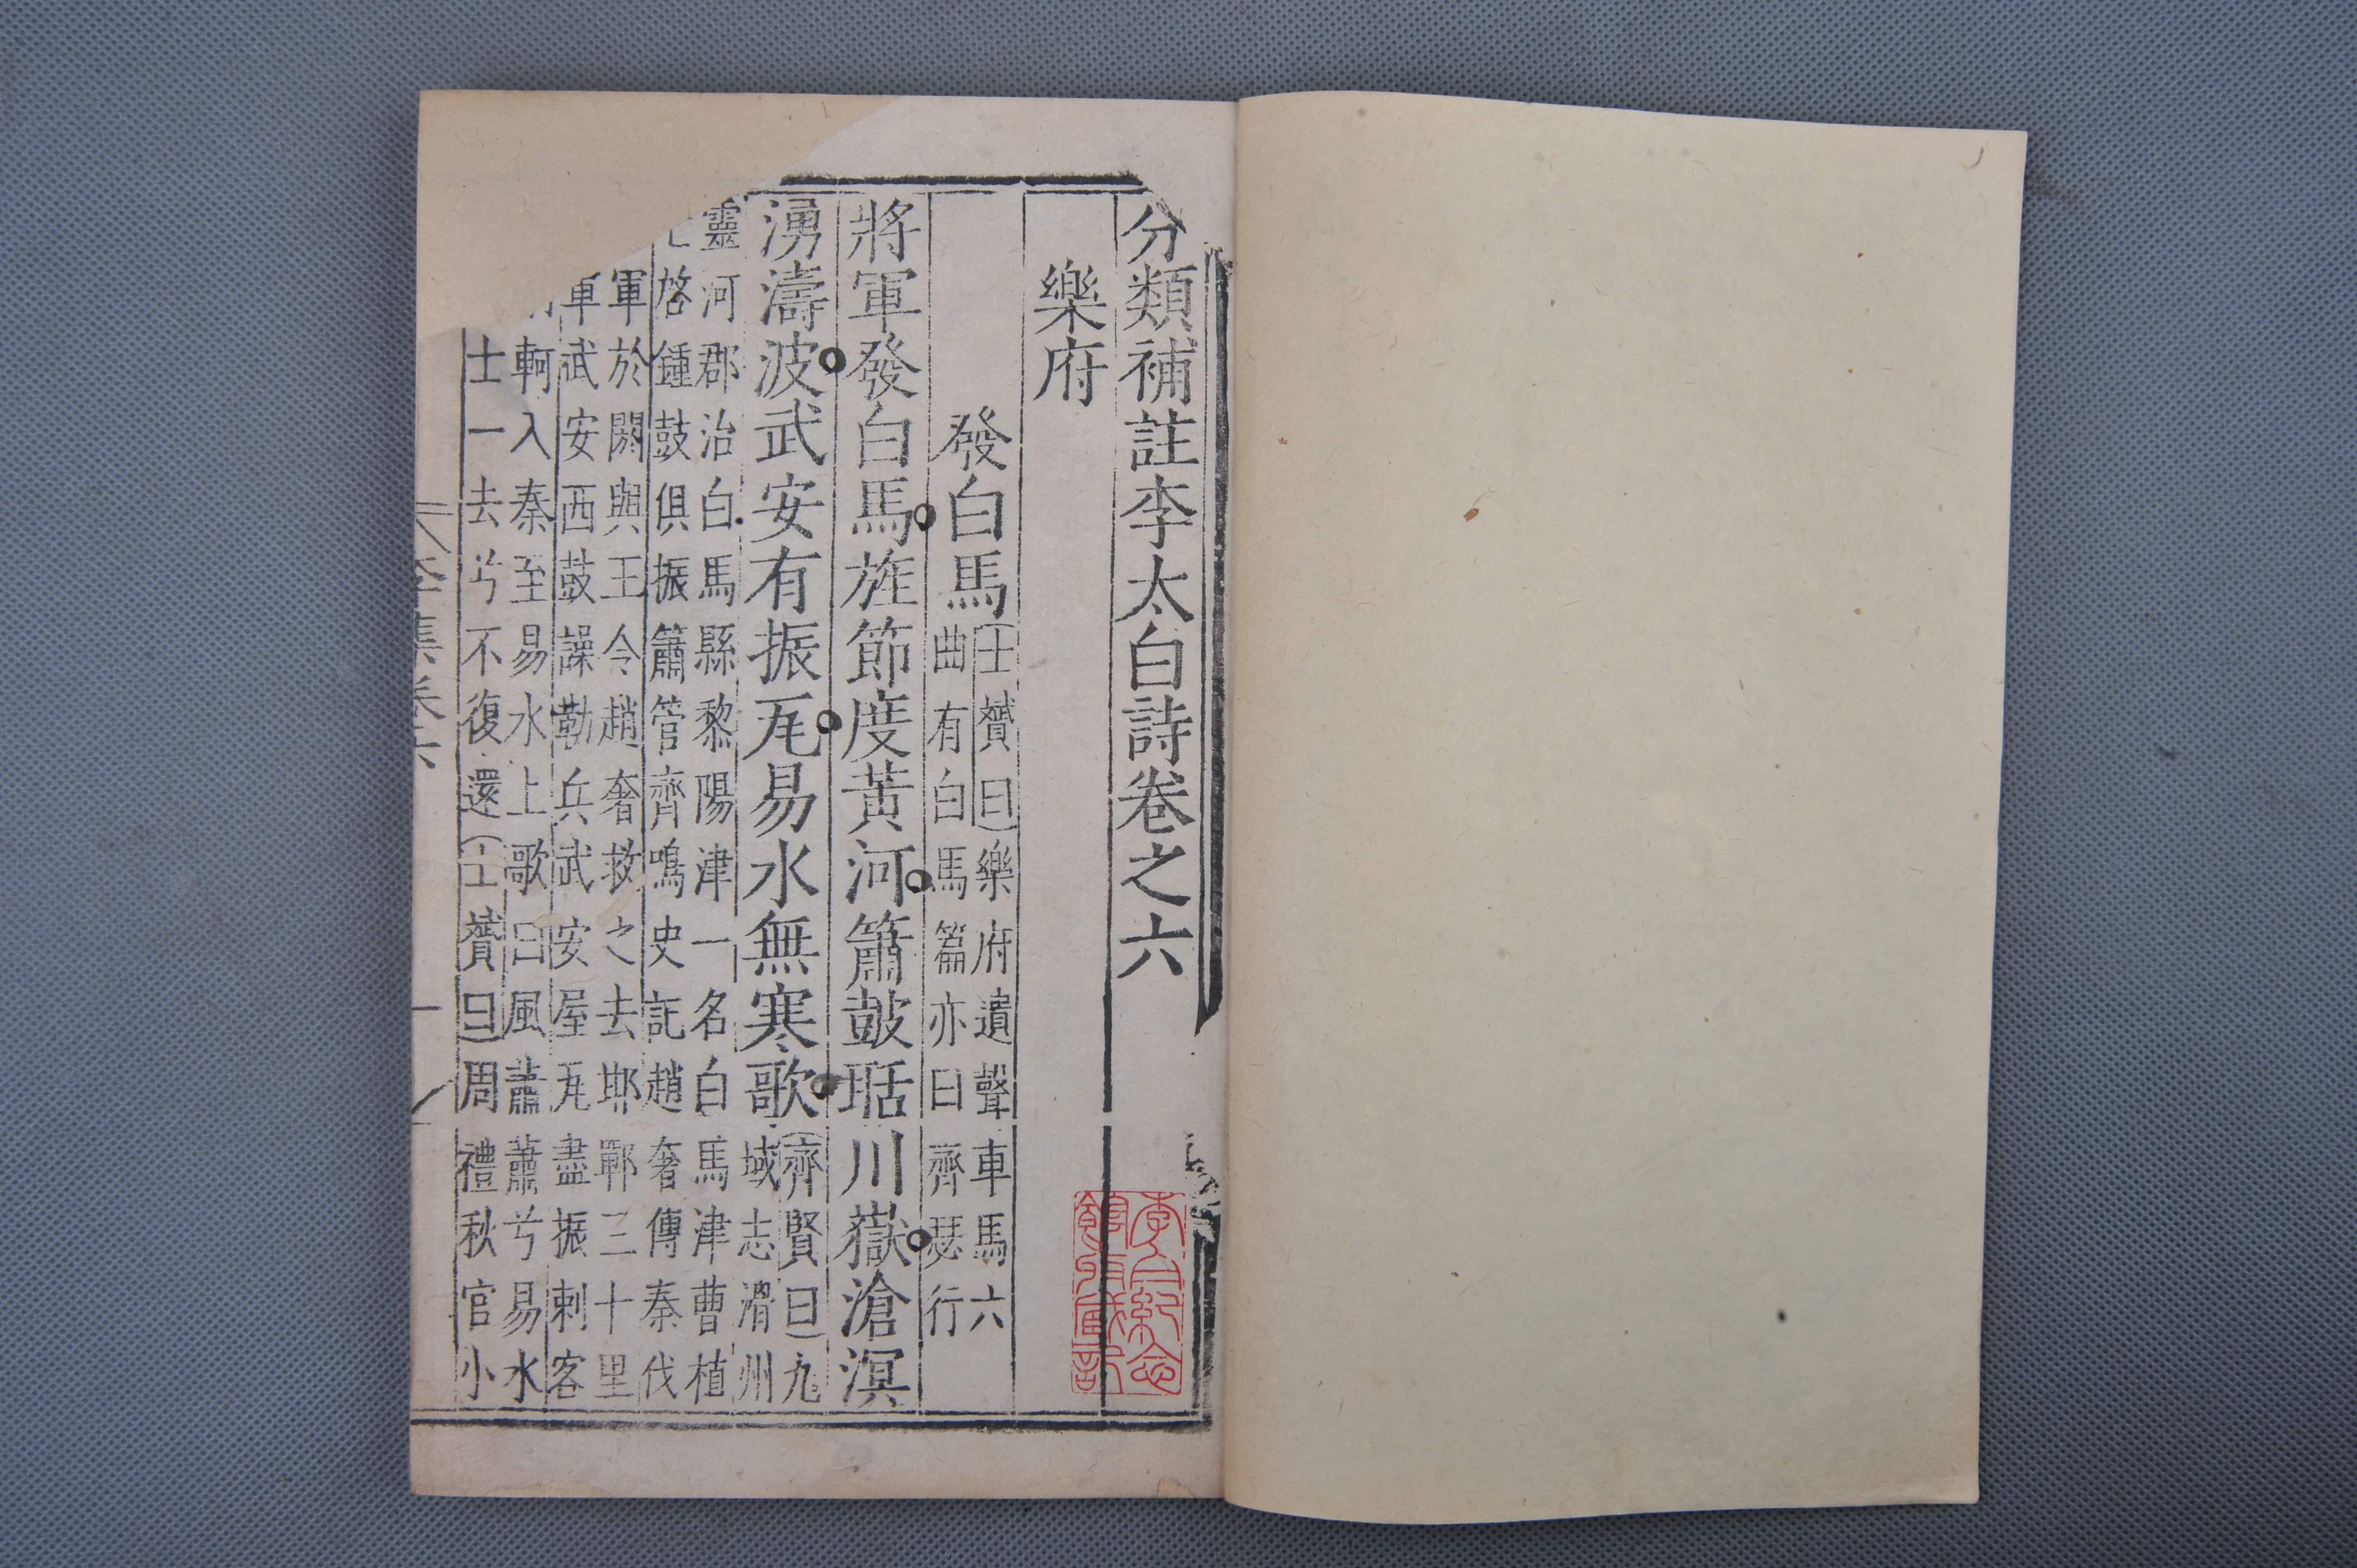 分類補註李太白詩卷之六
樂府
發白馬
(士贇曰)樂府遺聲車馬六
曲有白馬篇亦曰齊瑟行
將軍發白馬旌節度黃河簫鼓聒川嶽滄溟
湧濤波武安有振瓦易水無寒歌
(齊賢曰)九
域志滑州
靈河郡治白馬縣黎陽津一名白馬津曹植
啓鍾鼓俱振簫管齊鳴史記趙奢傳秦伐
軍於閼與王令趙奢救之去邯鄲三十里
軍武安西鼓譟勒兵武安屋瓦盡振刺客
軻入秦至易水上歌曰風蕭蕭兮易水
士一去兮不復還(士贇曰)周禮秋官小
李集卷六
一
李白紀念館